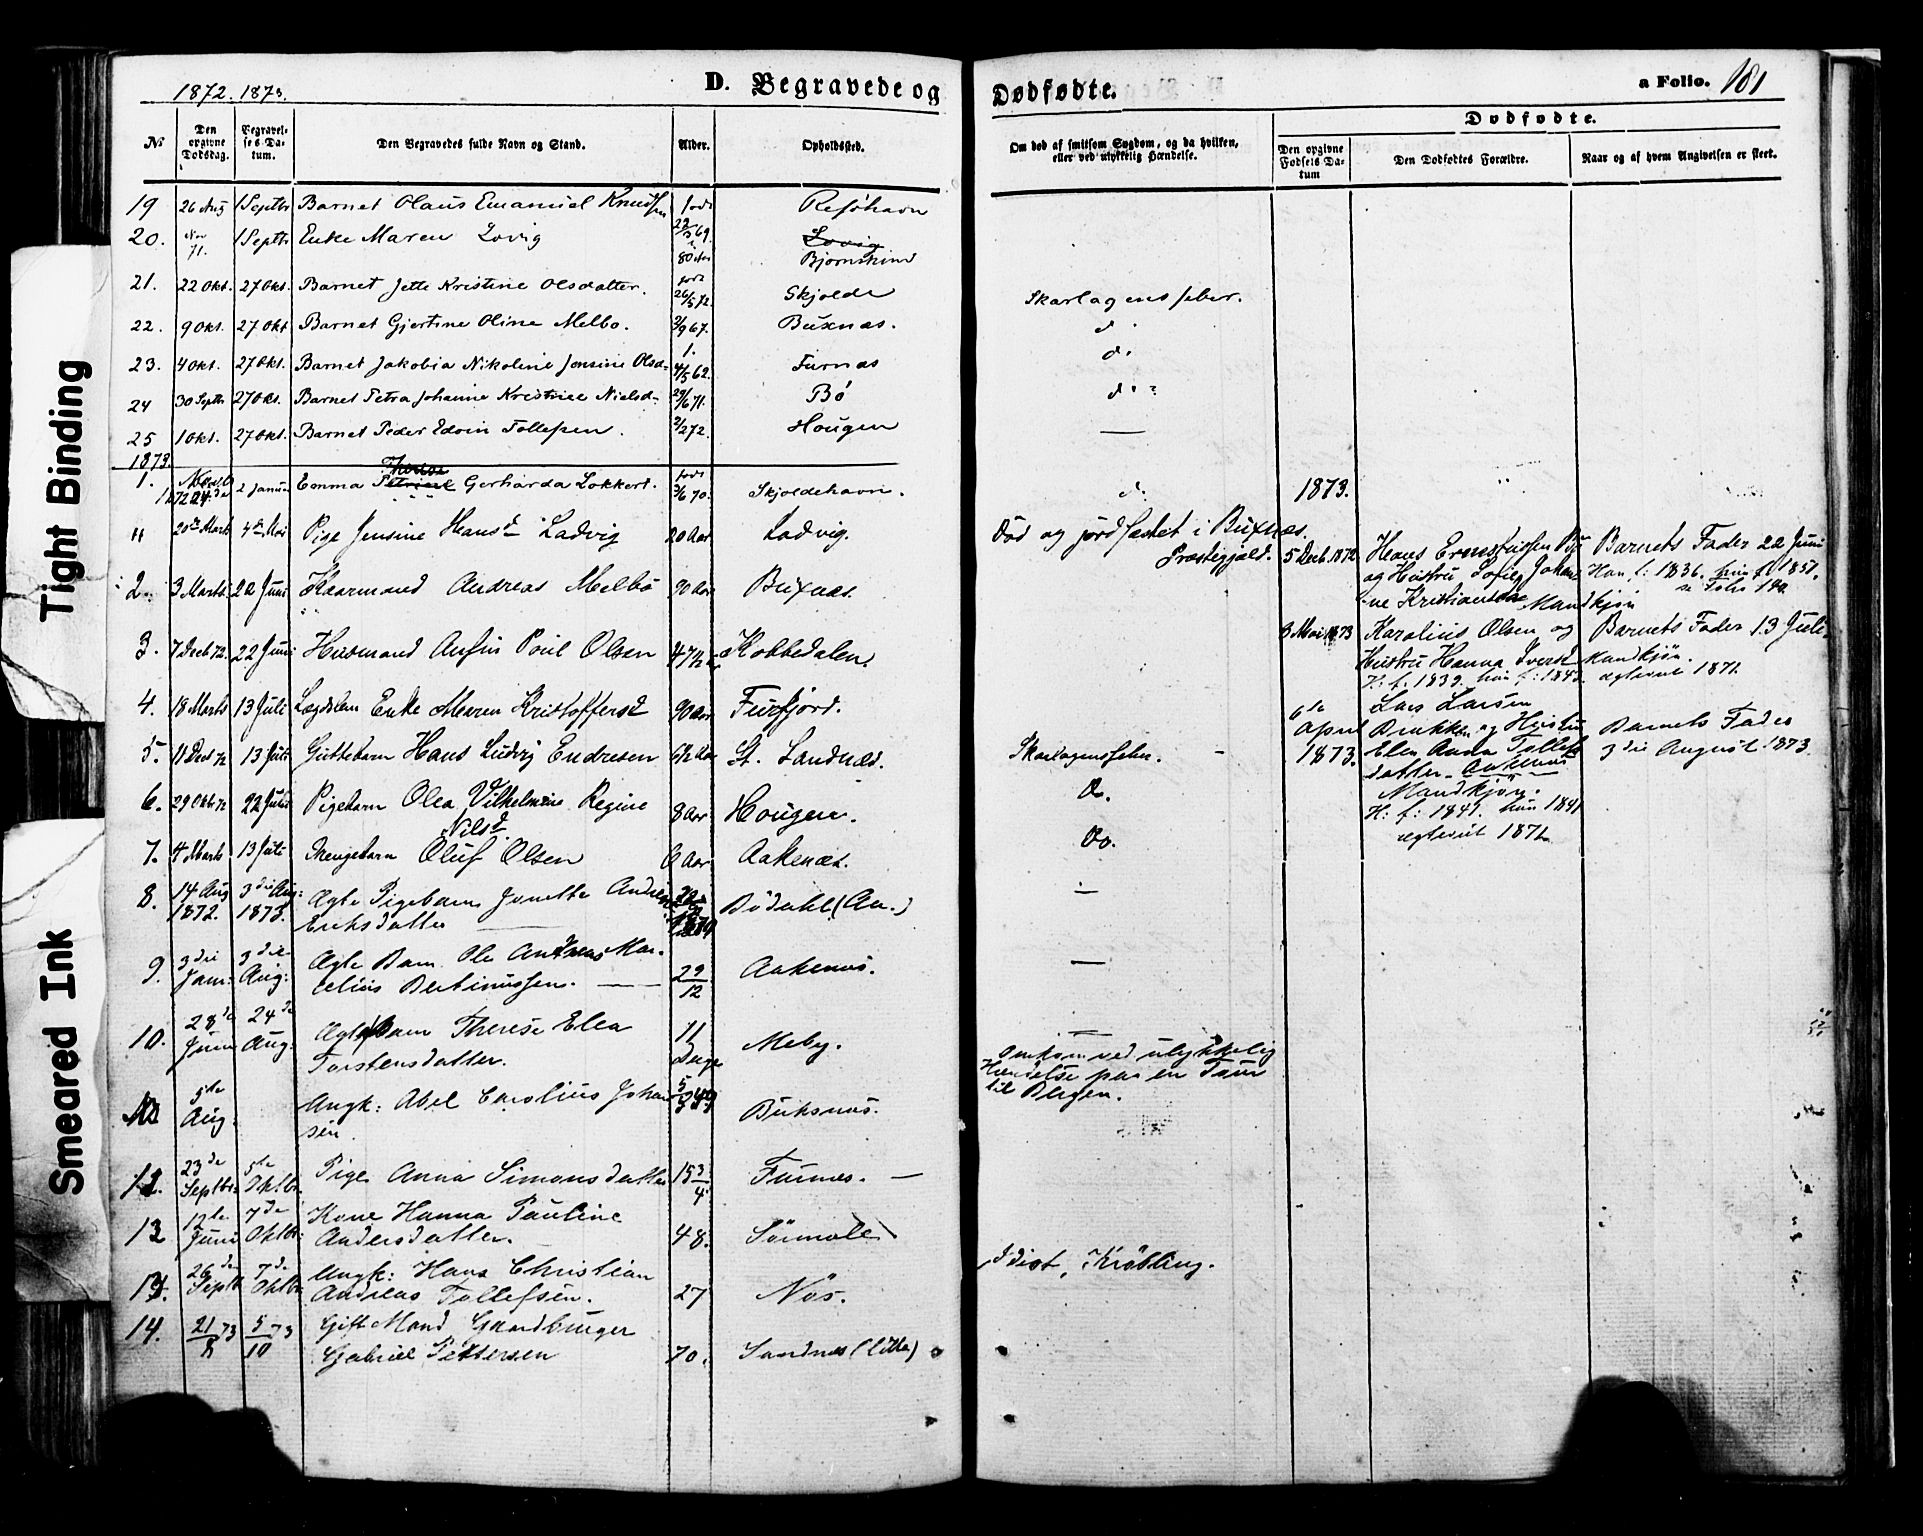 1872. 1873.
D. Begravede og
Dødfødte.
a Folio. 181
Tight Binding
Smeared Ink
No
Den opgivne Dødsdag.
Begravelses Datum.
Den Begravedes fulde Navn og Stand.
Alder.
Opholdssted.
Om død af smitsom Sygdom, og da hvilken, eller ved ulykkelig Hændelse.
Dødfødte.
Den opgivne Fødsels Datum
Den Dødfødtes Forældre.
Naar og af hvem Angivelsen er skeet.
19 26 Aug 1 Septbr Barnet Olaus Emanuel Knudsen født 69. Resøhavn
20. Nov 71. 1 Septbr Enke Maren Lovig 80 Aar Lovig
Bjørnskind
21. 22 Okt. 27 Okt. Barnet Jette Kristine Olsdatter. født 26/5 72. Skjolde Skarlagensfeber.
22. 9 Okt. 27 Okt Barnet Gjertine Oline Melbo. 2/9 67. Buxnæs. d.
23. 4 Okt. 27 Okt. Barnet Jakobia Nikoline Jensine Olsd. 4/5 62. Furnæs d.
24 30 Septbr 27 Okt. Barnet Petra Johanne Kristine Nielsd. 29/6 71. Bø d.
25 1 Okt. 27 Okt. Barnet Peder Edvin Tollefsen. 2/2 72. Hougen —
1873.
1. 1872 24de 2 Januar Emma Therese Gerharda Lokkert. født 3/6 70. Skjoldehavn. d. 1873.
11 20de Marts 4de Mai Pige Jensine Hansd Ladvig 20 Aar Ladvig. Død og jordfæstet i Buxnæs
Præstegjæld.
5 Decb 1872 Hans Ernstussen
og Hustru Sofie Johan
ne Kristiansdr Mandkjøn
Barnets Fader 22 Juni
Han f: 1836. hun f. 1851.
se Folio
2. 3 Marts 22 Juni Kaarmand Andreas Melbo 90 Aar Buxnæs.
3. 7 Decb 72. 22 Juni Husmand Anfin Poul Olsen 47½ Kobbedalen.
8 Mai 1873 Karolius Olsen og
Hustru Hanna Iversd
H: f. 1839. hun f: 184
Barnets Fader 13 Juli
Mandkjøn.
ægteviet 1871.
4. 18 Marts 13 Juli Lægdslem Enke Maren Kristoffersd 90 Aar Furfjord.
6te April 1873.
Lars Larsen
og Hustru
Elen Anna Tollef
datter. Aakenæs
Mandkjøn.
H: f: 1841. hun 1841
ægteviet 1871.
Barnets Fader
3die August 1873
5. 11 Decb 72 13 Juli Guttebarn Hans Ludvig Endresen 6½ Aar St. Sandnæs. Skarlagensfeber.
6. 29 Oktb 72 22 Juni Pigebarn Olea Vilhelmine Regine
Nilsd. 8 Aar Hougen. Do.
7. 4 Marts 13 Juli Drengebarn Oluf Olsen 6 Aar Aakenæs. Do.
8. 14 Aug 1872. 3die Aug: 1873. Ægte Pigebarn Jonette
Eriksdatter Bödahl (Aa.) —
9. 3die Jan: 3die Aug: Ægte Barn Ole Andreas Mar-
celius Bertinussen. 29/12 Aakenæs. —
10. 28de Juni 24de Aug: Ægte Barn Therese Elea
Torstensdatter. 11 Dage Meby. —
5te Aug: Ungk: Abel Carolius Johan
sen. Buksnæs.
Omkom ved ulykkelig
Hændelse paa en Tour
til Bergen.
12. 23de Septbr. 5te Oktbr. Pige Anna Simonsdatter 15 3/4 Furnes. —
13 12te Juni 7de Oktbr. Kone Hanna Pauline
Andersdatter. 48. Sörmole
26de Septb 7de Oktbr Ungk: Hans Christian
Andreas Tollefsen. 27 Nös. Idiot, Krøbling.
14. 21/8 73 5/10 73 Gift Mand Gaardbruger
Gabriel Pettersen 70. Sandnes (lille)